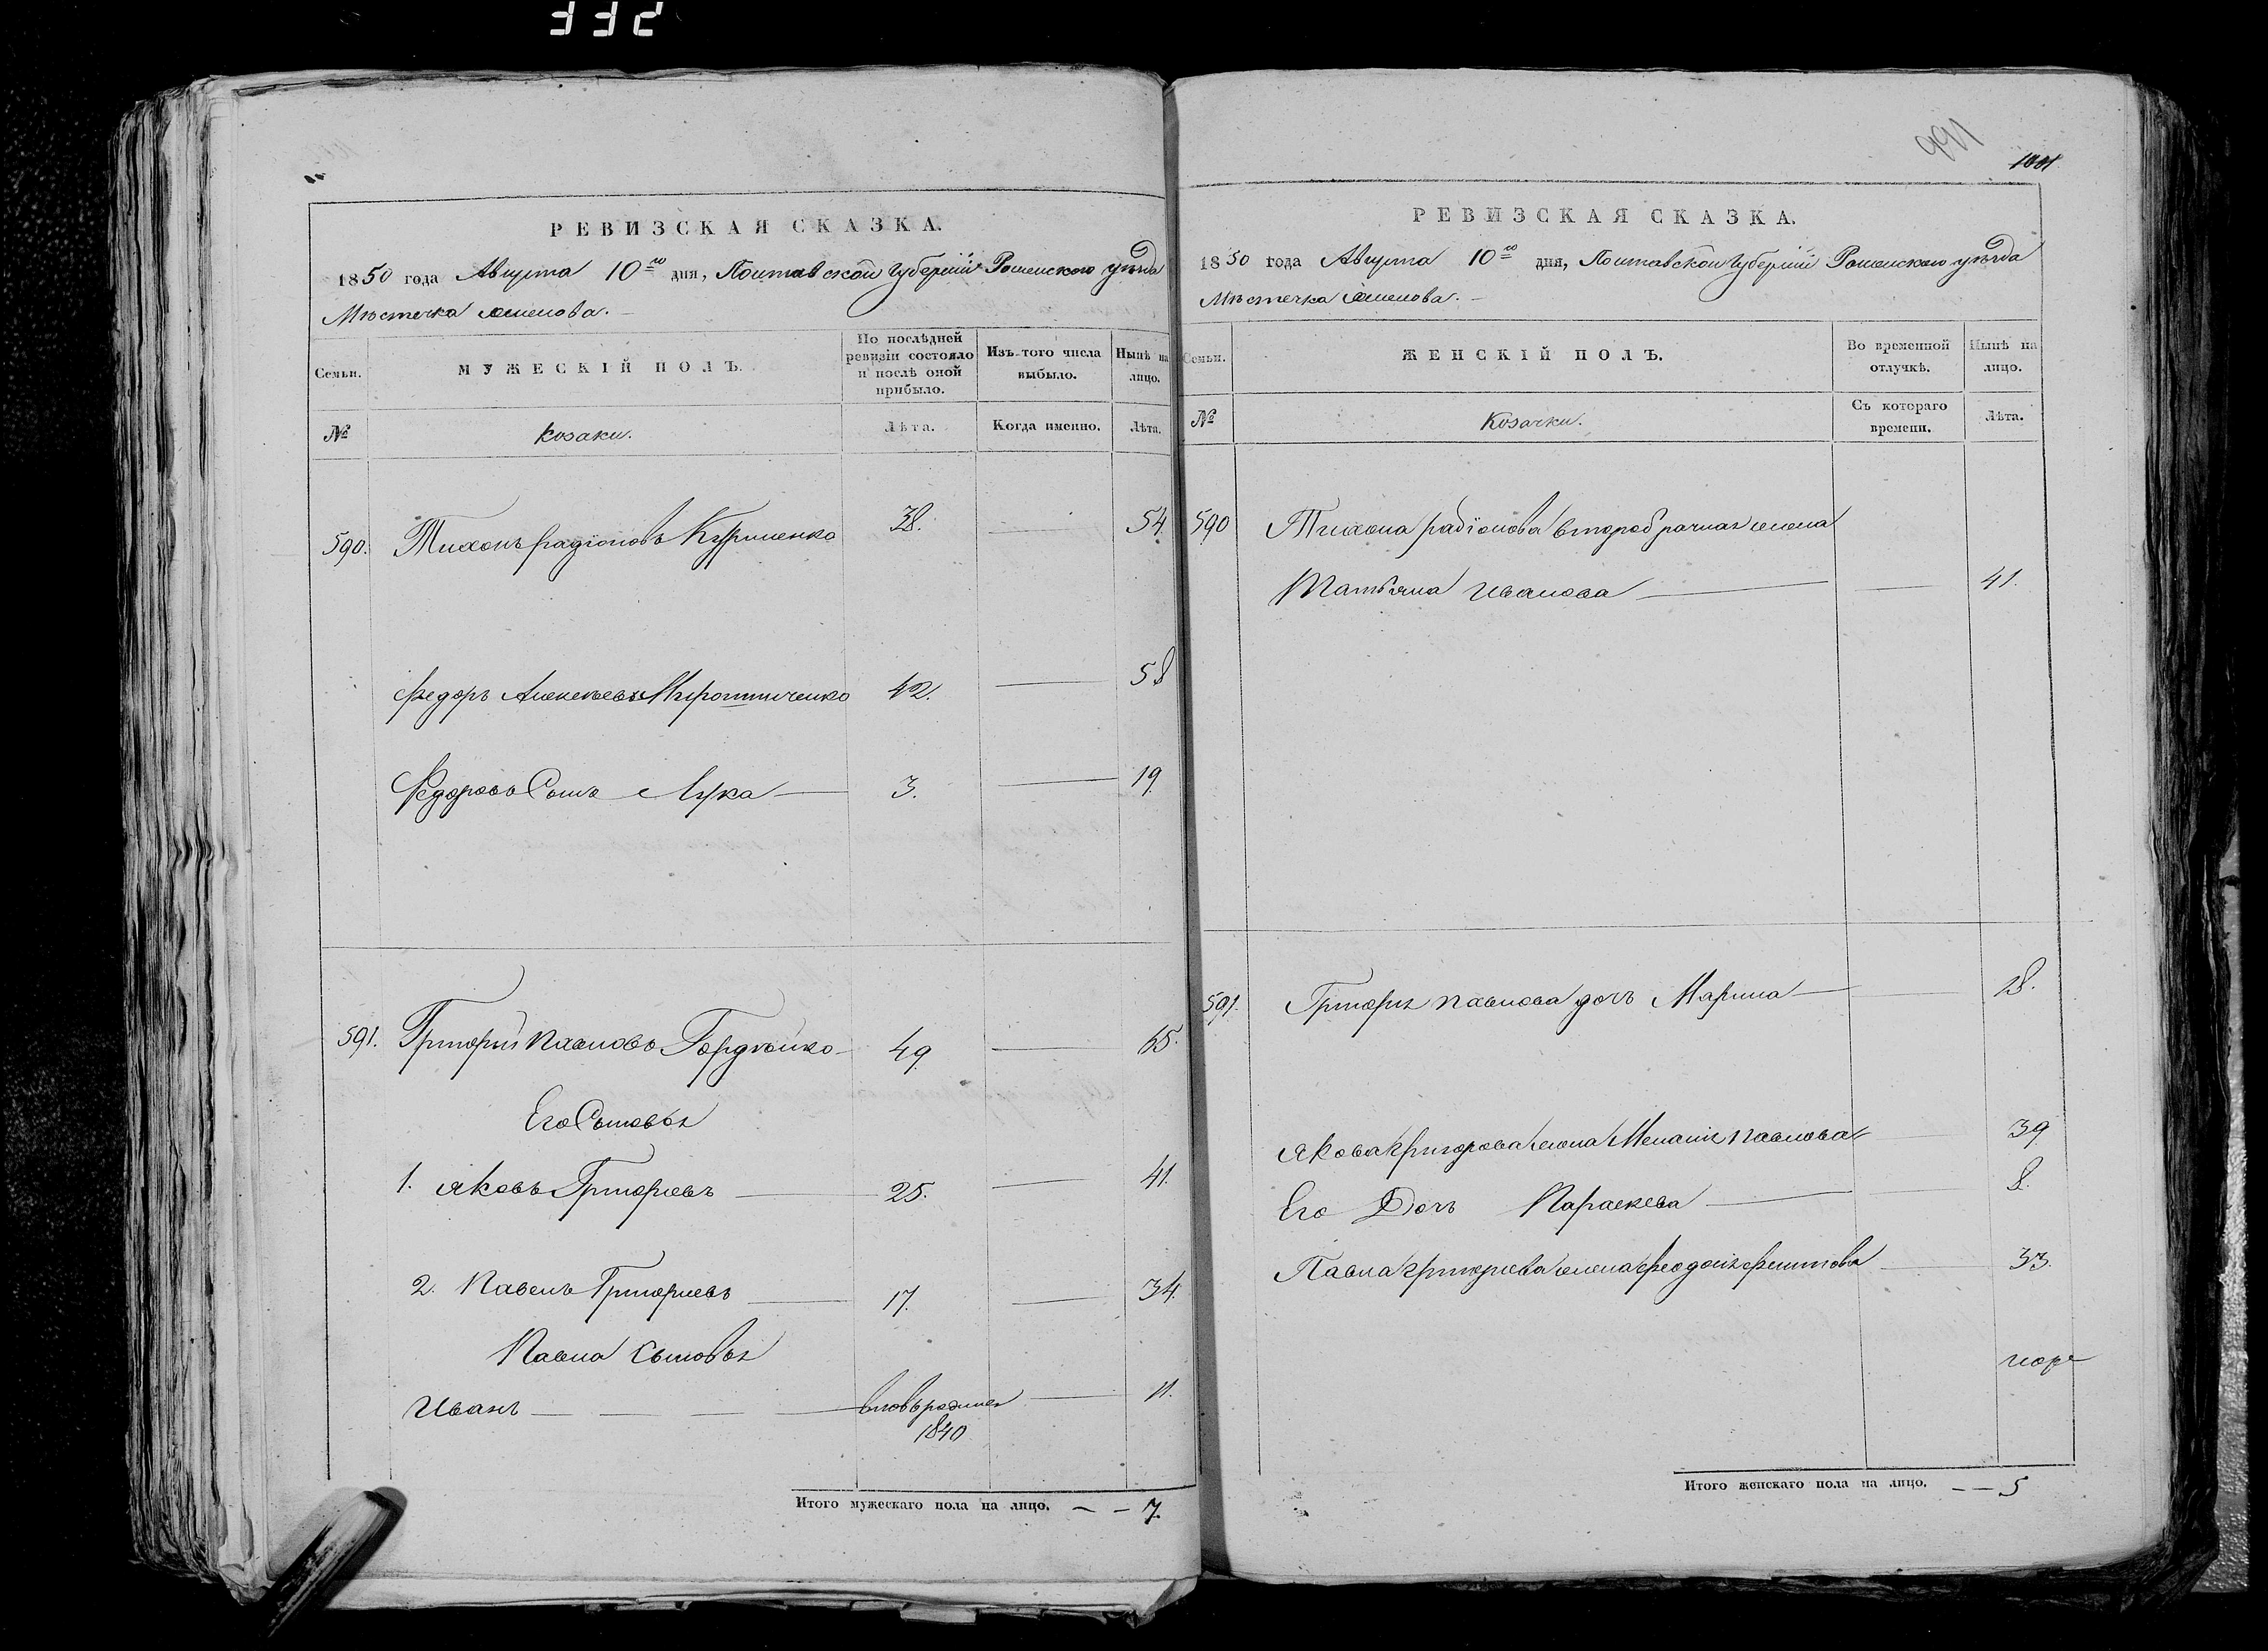 332
РЕВИЗСКАЯ СКАЗКА.
1850 года Августа 10го дня, Полтавской Губерніи Роменскаго уѣзда
Мѣстечка
Семьи.
МУЖЕСКІЙ ПОЛЪ.
По послѣдней ревизіи состояло и послѣ оной прибыло.
Изъ того числа выбыло.
Нынѣ на лицо.
№
Козаки.
Лѣта.
Когда именно.
Лѣта.
590. Тихонъ Радіоновъ 38. — 54
Федоръ Алексѣевъ Мирошниченко 42. — 58
Федоровъ Сынъ Лука — 3. — 19
591. Григорій Павловъ Гордѣйко — 49 — 65.
Его Сыновья
1. Яковъ Григорьевъ — 25. — 41.
2. Павелъ Григорьевъ — 17. — 34.
Павла Сыновья
Иванъ — — — — вновьрожден — 11.
1840
Итого мужескаго пола на лицо. — — 7.
991
1001
РЕВИЗСКАЯ СКАЗКА.
1850 года Августа 10го дня, Полтавской Губерніи Роменскаго уѣзда
Мѣстечка
Семьи.
ЖЕНСКІЙ ПОЛЪ.
Во временной отлучкѣ.
Нынѣ на лицо.
№
Козачки.
Съ котораго времени.
Лѣта.
590 Тихона Радіонова второбрачная жена
Татьяна Иванова — — 41.
591. Григорія Павлова дочь Марина — — 18.
Якова Григорова жена Меланія Павлова 39
Его Дочь Параскева — — 8.
Павла Григорьева жена Феодосія 33.
Итого женскаго пола на лицо. — — 5